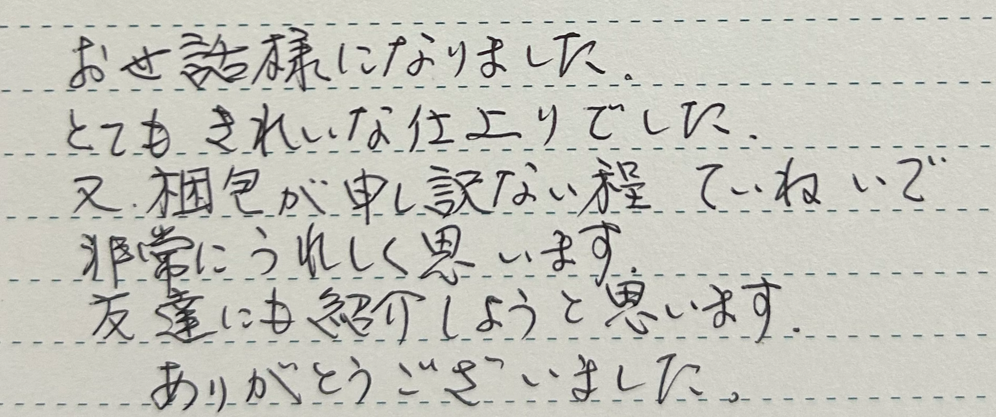 おせ話様になりました.
とてもきれいな仕上りでした.
又.梱包が申し訳ない程 ていねいで
非常にうれしく思います.
友達にも紹介しようと思います.
ありがとうございました。